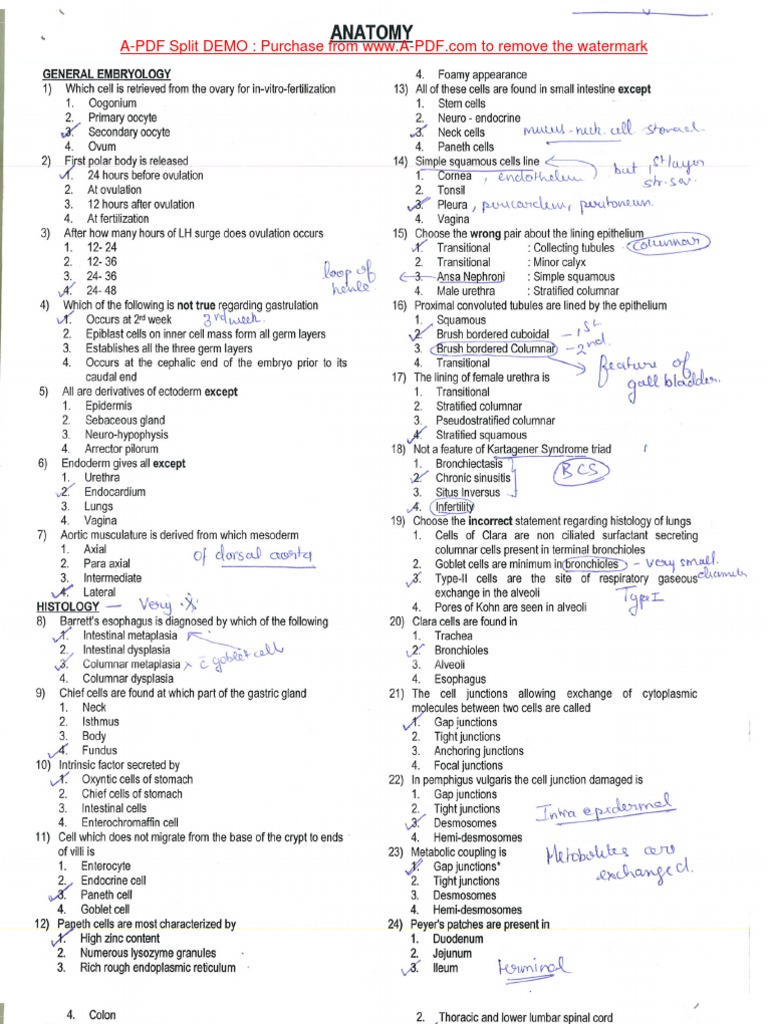 ANATOMY
A-PDF Split DEMO : Purchase from www.A-PDF.com to remove the watermark
GENERAL EMBRYOLOGY
1) Which cell is retrieved from the ovary for in-vitro-fertilization
1. Oogonium
2. Primary oocyte
3. Secondary oocyte
4. Ovum
2) First polar body is released
1. 24 hours before ovulation
2. At ovulation
3. 12 hours after ovulation
4. At fertilization
3) After how many hours of LH surge does ovulation occurs
1. 12- 24
2. 12- 36
3. 24- 36
4. 24- 48
loop of
henle
4) Which of the following is not true regarding gastrulation
1. Occurs at 2nd week 3rd week.
2. Epiblast cells on inner cell mass form all germ layers
3. Establishes all the three germ layers
4. Occurs at the cephalic end of the embryo prior to its
caudal end
5) All are derivatives of ectoderm except
1. Epidermis
2. Sebaceous gland
3. Neuro-hypophysis
4. Arrector pilorum
6) Endoderm gives all except
1. Urethra
2. Endocardium
3. Lungs
4. Vagina
7) Aortic musculature is derived from which mesoderm
1. Axial
2. Para axial of dorsal aorta
3. Intermediate
4. Lateral
HISTOLOGY — Very
8) Barrett's esophagus is diagnosed by which of the following
1. Intestinal metaplasia
2. Intestinal dysplasia
3. Columnar metaplasia c̄ goblet cell
4. Columnar dysplasia
9) Chief cells are found at which part of the gastric gland
1. Neck
2. Isthmus
3. Body
4. Fundus
10) Intrinsic factor secreted by
1. Oxyntic cells of stomach
2. Chief cells of stomach
3. Intestinal cells
4. Enterochromaffin cell
11) Cell which does not migrate from the base of the crypt to ends
of villi is
1. Enterocyte
2. Endocrine cell
3. Paneth cell
4. Goblet cell
12) Paneth cells are most characterized by
1. High zinc content
2. Numerous lysozyme granules
3. Rich rough endoplasmic reticulum
4. Foamy appearance
13) All of these cells are found in small intestine except
1. Stem cells
2. Neuro - endocrine
3. Neck cells mucus-neck cell stomach.
4. Paneth cells
14) Simple squamous cells line
1. Cornea , endothelium but, 1st layer
str. sq.
2. Tonsil
3. Pleura , pericardium, peritoneum.
4. Vagina
15) Choose the wrong pair about the lining epithelium
1. Transitional : Collecting tubules columnar
2. Transitional : Minor calyx
3. Ansa Nephroni : Simple squamous
4. Male urethra : Stratified columnar
16) Proximal convoluted tubules are lined by the epithelium
1. Squamous
2. Brush bordered cuboidal — 1st
3. Brush bordered Columnar — 2nd.
4. Transitional feature of
gall bladder.
17) The lining of female urethra is
1. Transitional
2. Stratified columnar
3. Pseudostratified columnar
4. Stratified squamous
18) Not a feature of Kartagener Syndrome triad
1. Bronchiectasis
2. Chronic sinusitis BCS
3. Situs Inversus
4. Infertility
19) Choose the incorrect statement regarding histology of lungs
1. Cells of Clara are non ciliated surfactant secreting
columnar cells present in terminal bronchioles
2. Goblet cells are minimum in bronchioles - very small
diameter
3. Type-II cells are the site of respiratory gaseous
exchange in the alveoli Type I
4. Pores of Kohn are seen in alveoli
20) Clara cells are found in
1. Trachea
2. Bronchioles
3. Alveoli
4. Esophagus
21) The cell junctions allowing exchange of cytoplasmic
molecules between two cells are called
1. Gap junctions
2. Tight junctions
3. Anchoring junctions
4. Focal junctions
22) In pemphigus vulgaris the cell junction damaged is
1. Gap junctions
2. Tight junctions Intra epidermal
3. Desmosomes
4. Hemi-desmosomes
23) Metabolic coupling is Metabolites are
exchanged.
1. Gap junctions*
2. Tight junctions
3. Desmosomes
4. Hemi-desmosomes
24) Peyer's patches are present in
1. Duodenum
2. Jejunum
3. Ileum terminal
4. Colon
2. Thoracic and lower lumbar spinal cord